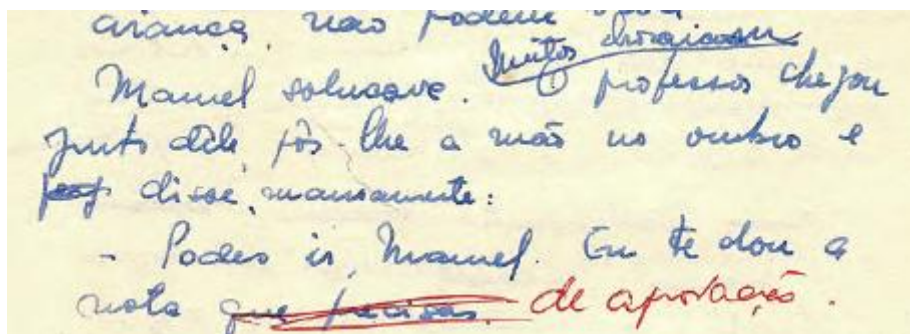 criança, não podem
Muitos choraram
Manuel soluçava. O professor chegou
junto dêle, pôs-lhe a mão no ombro e
disse, mansamente:
- Podes ir, Manuel. Eu te dou a
nota que precisas. de aprovação.